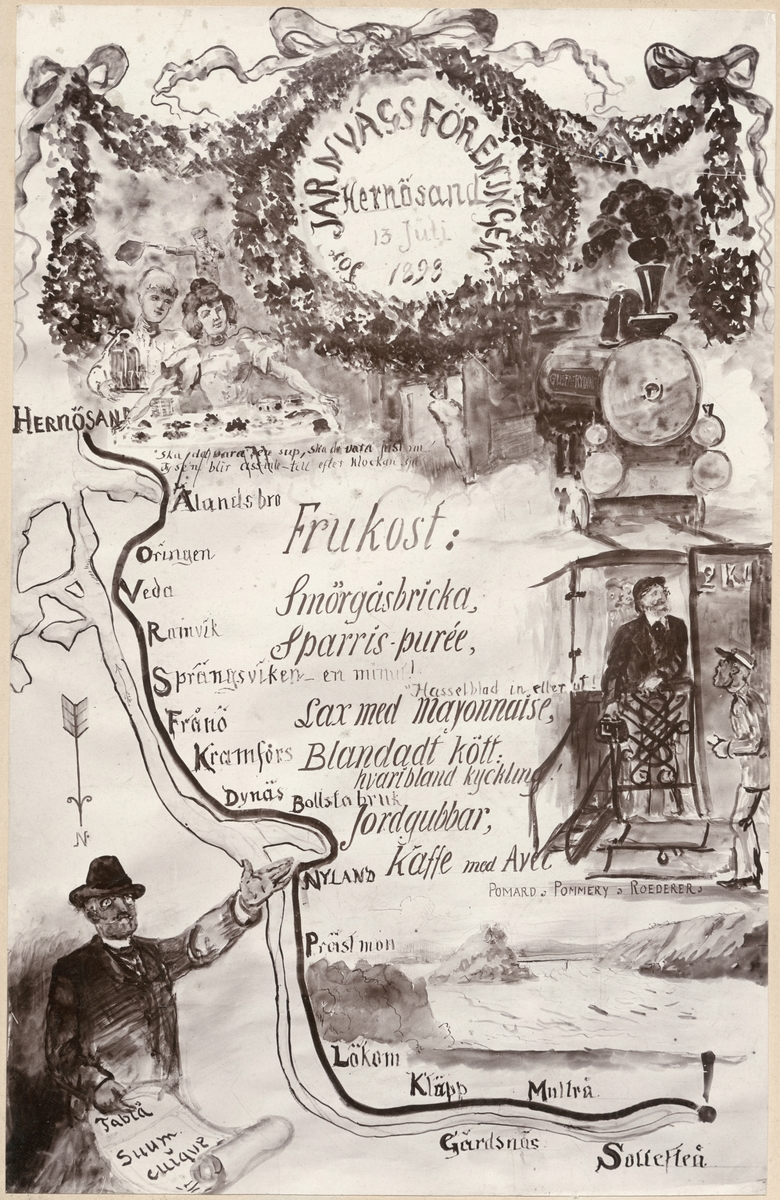 JÄRNVÄGSFÖRENINGEN
Hernösand
13 Juli
1893
HERNÖSAND
"Ska det vara en sup, ska de vara
blir efter klockan
Ålandsbro
Frukost:
Öringen
Veda
Smörgåsbricka,
Ramvik
Sparris-purée,
Sprängsviken – en minut!
"Hasselblad in eller ut!
Frånö
Lax med Mayonnaise,
Kramfors
Blandadt kött:
hvaribland kyckling!
Dynäs
Bollstabruk
Jordgubbar,
NYLAND
Kaffe med Avec
POMARD, POMMERY, ROEDERER.
N
Prästmon
Läkom
Kläpp
Multrå
Gårdsnäs
Sollefteå
Tablå
Suum
cuique
2 KL